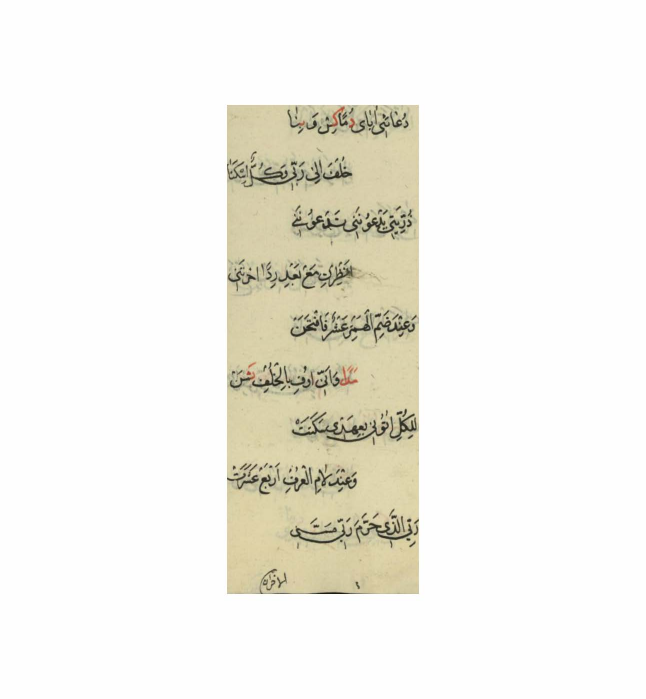 دُعَائِى اٰبَاى دُمَّا كِسْ وَبِنَا
خُلْفَ اِلىٰ رَبّى وَكُلٌّ اَسْكَنَا
ذُرِّيَتِى يَدْعُونَنِى تَدْعُونَنِى
اَنْظِرْنِ مَعْ بَعْدِ رِدًا اخرتَنِى
وَعِنْدَ ضَمِّ الْهَمْزِ عَشْرٌ فَافْتَحَنْ
مَدًا وَاَنِّى اُوْفِ بِالْخُلْفِ ثَمَنْ
لِلْكُلِّ اٰتُوْنِى بِعَهْدِى سَكَنَتْ
وَعِنْدَ لَامِ الْعُرْفِ اَرْبَعْ عَشْرَتْ
رَبِّى الَّذِى حَرَّمَ رَبِّى مَسَّنِى
الاخران